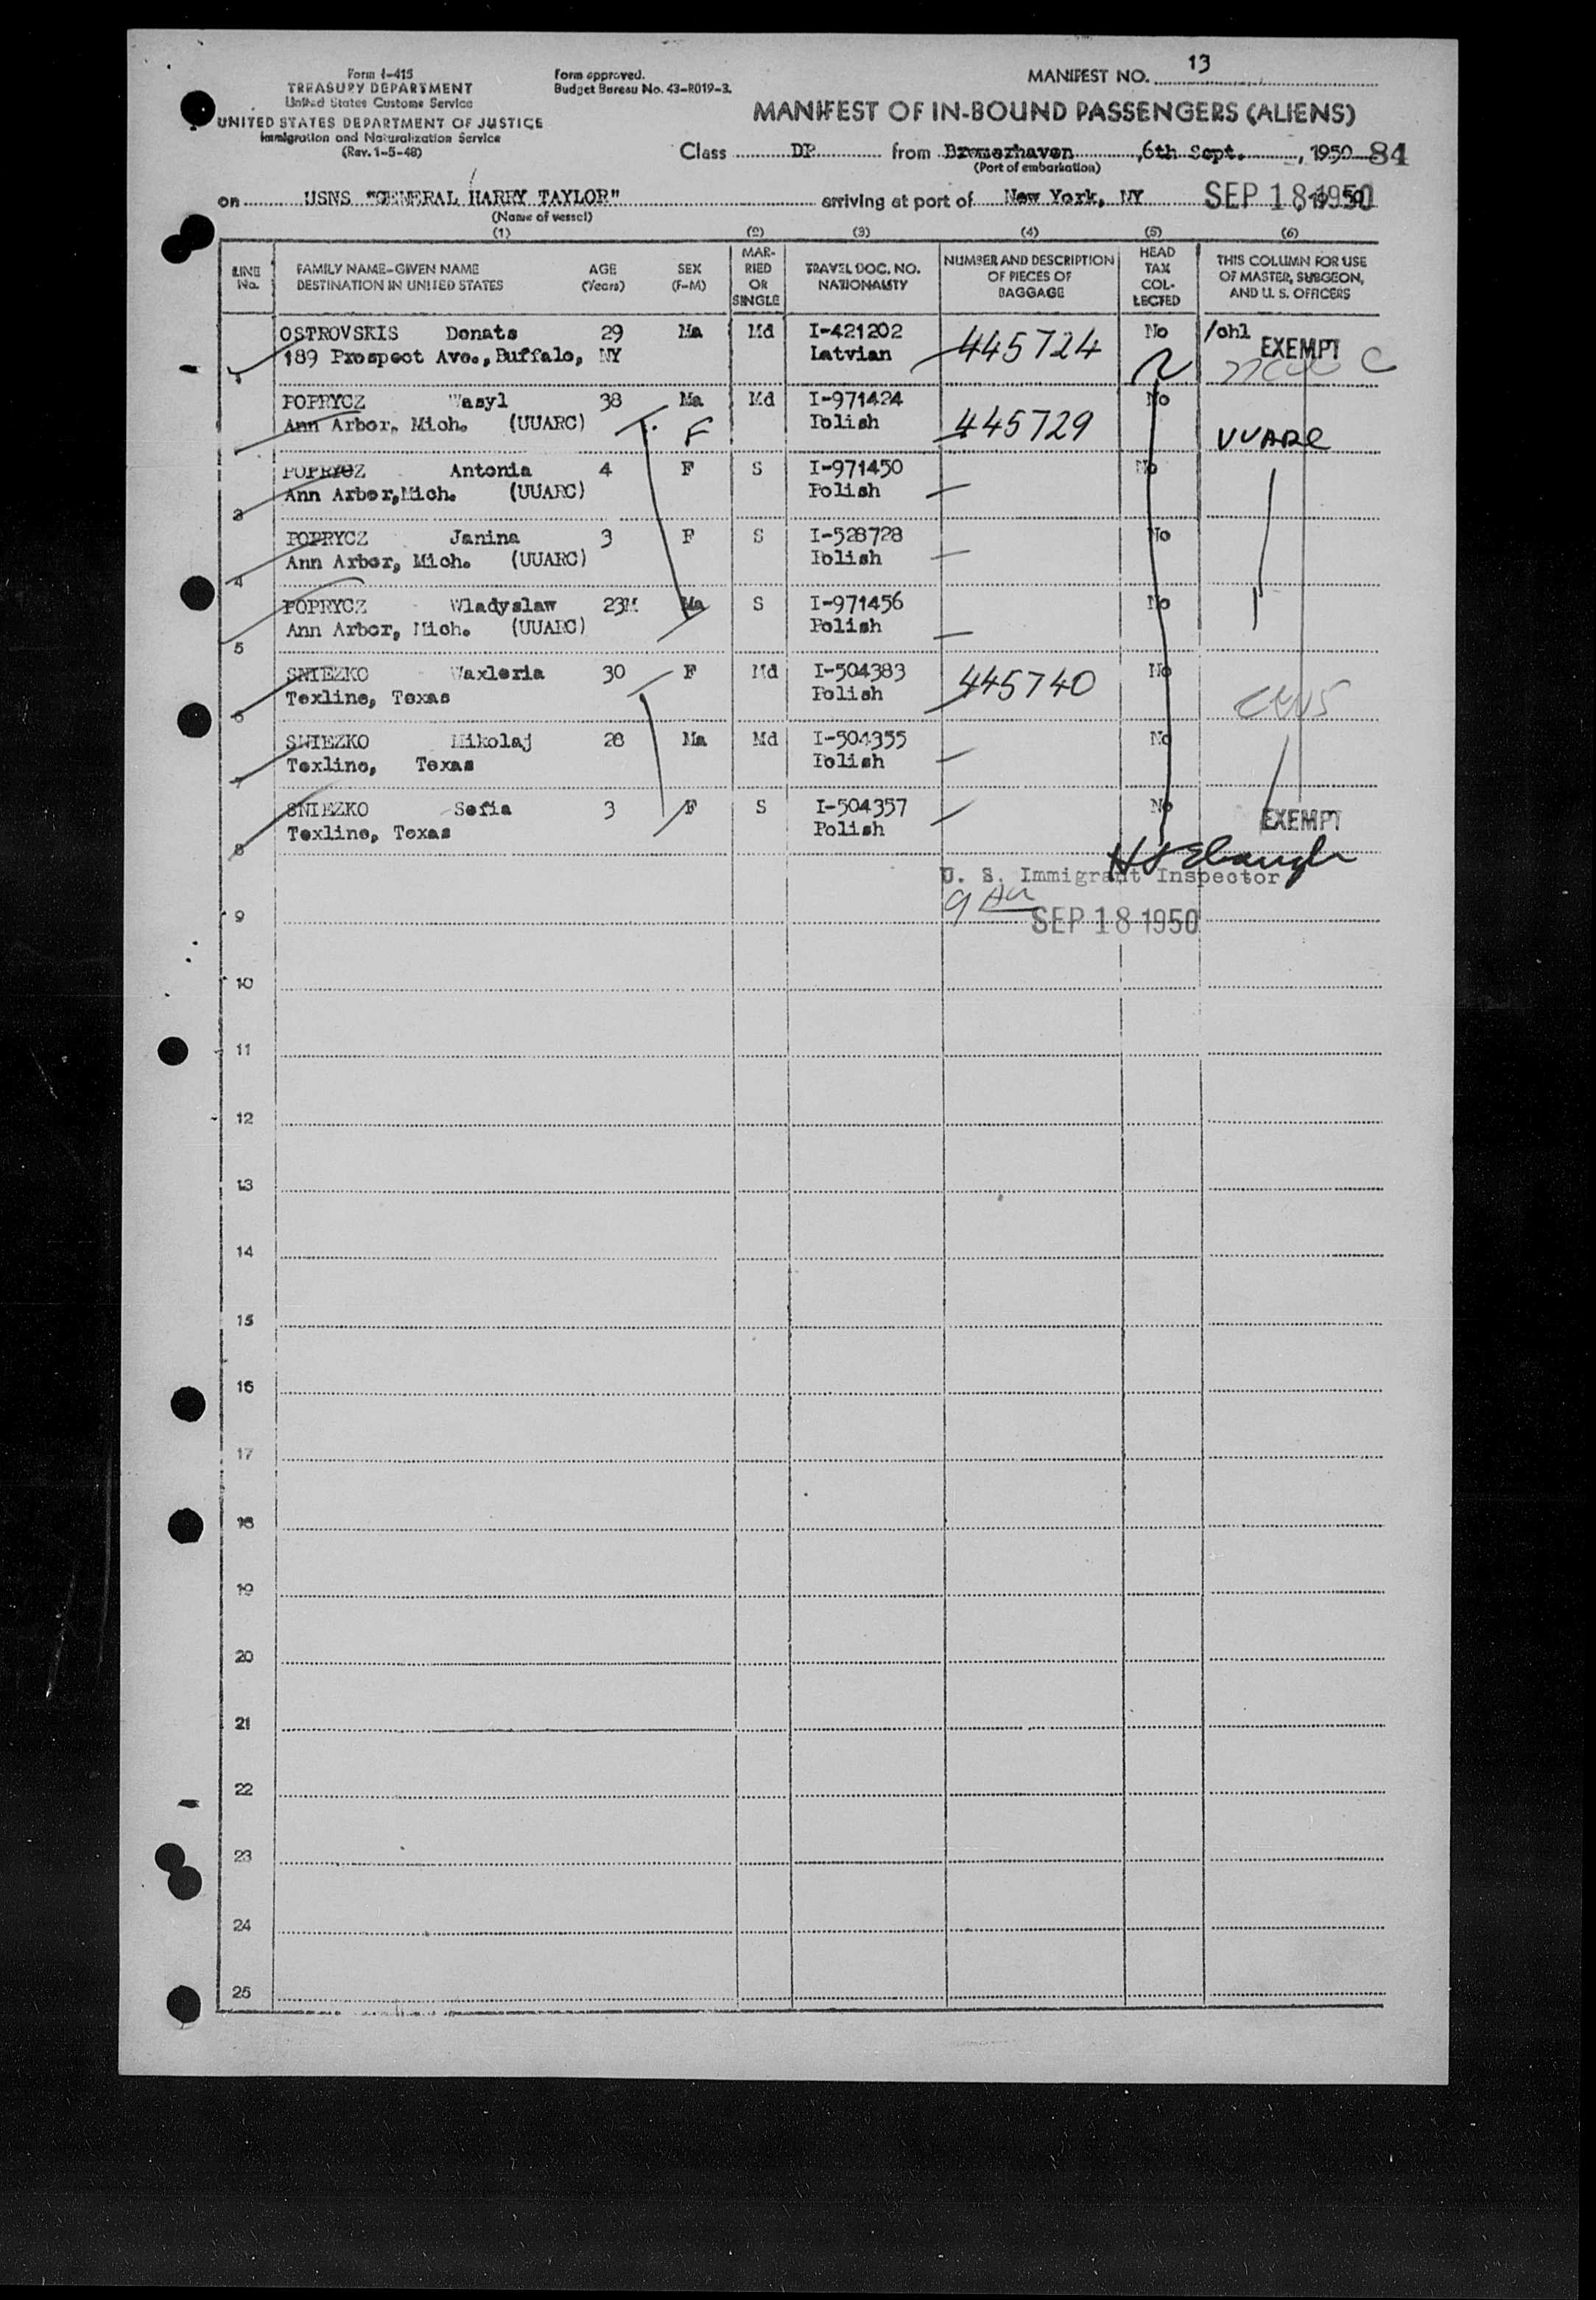 Form I-415
TREASURY DEPARTMENT
United States Customs Service
UNITED STATES DEPARTMENT OF JUSTICE
Immigration and Naturalization Service
(Rev. 1-5-48)
Form approved.
Budget Bureau No. 43-R019-3.
MANIFEST NO. 13
MANIFEST OF IN-BOUND PASSENGERS (ALIENS)
Class DP from Bremerhaven, 6th Sept., 1950 84
(Port of embarkation)
on USNS "GENERAL HARRY TAYLOR" arriving at port of New York, NY SEP 18 1950, 1950
(Name of vessel)
(1) (2) (3) (4) (5) (6)
LINE No. FAMILY NAME-GIVEN NAME DESTINATION IN UNITED STATES AGE (Years) SEX (F-M) MARRIED OR SINGLE TRAVEL DOC. NO. NATIONALITY NUMBER AND DESCRIPTION OF PIECES OF BAGGAGE HEAD TAX COLLECTED THIS COLUMN FOR USE OF MASTER, SURGEON, AND U. S. OFFICERS
OSTROVSKIS Donats 29 Ma Md I-421202 445724 No /ohl EXEMPT
189 Prospect Ave., Buffalo, NY Latvian
POPRYCZ Wasyl 38 Ma Md I-971424 No
Ann Arbor, Mich. (UUARC) F Polish 445729 UUARC
POPRYCZ Antonia 4 F S I-971450 No
3 Ann Arbor, Mich. (UUARC) Polish
POPRYCZ Janina 3 F S I-528728 No
4 Ann Arbor, Mich. (UUARC) Polish
POPRYCZ Wladyslaw 23M Ma S I-971456 No
5 Ann Arbor, Mich. (UUARC) Polish
SNIEZKO Waxleria 30 F Md I-504383 445740 No
6 Texline, Texas Polish
SNIEZKO Mikolaj 28 Ma Md I-504355 No
7 Texline, Texas Polish
SNIEZKO Sofia 3 F S I-504357 No EXEMPT
8 Texline, Texas Polish
U. S. Immigrant Inspector
9 SEP 18 1950
10
11
12
13
14
15
16
17
18
19
20
21
22
23
24
25